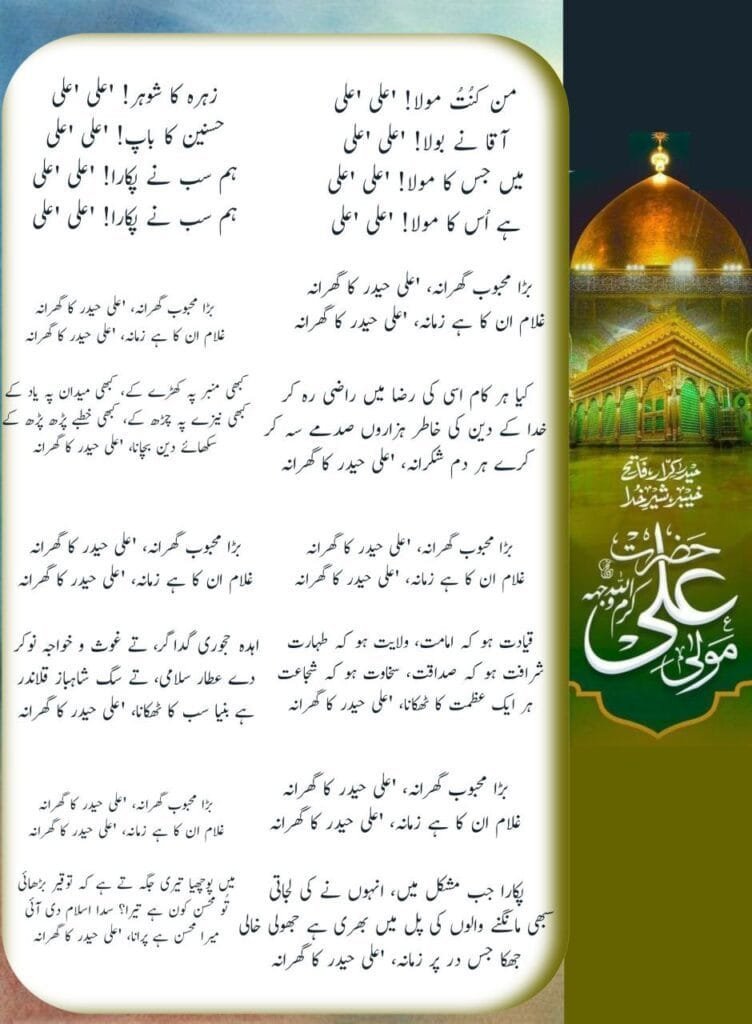 من کنُتُ مولا! 'علی 'علی
آقا نے بولا! 'علی 'علی
میں جس کا مولا! 'علی 'علی
ہے اُس کا مولا! 'علی 'علی
زہرہ کا شوہر! 'علی 'علی
حسنین کا باپ! 'علی 'علی
ہم سب نے پکارا! 'علی 'علی
ہم سب نے پکارا! 'علی 'علی
بڑا محبوب گھرانہ، 'علی حیدر کا گھرانہ
غلام ان کا ہے زمانہ، 'علی حیدر کا گھرانہ
بڑا محبوب گھرانہ، 'علی حیدر کا گھرانہ
غلام ان کا ہے زمانہ، 'علی حیدر کا گھرانہ
کیا ہر کام اسی کی رضا میں راضی رہ کر
خدا کے دین کی خاطر ہزاروں صدمے سہ کر
کرے ہر دم شکرانہ، 'علی حیدر کا گھرانہ
کبھی منبر پہ کھڑے کے، کبھی میدان پہ یاد کے
کبھی نیزے پہ چڑھ کے، کبھی خطبے پڑھ پڑھ کے
سکھائے دین بچانا، 'علی حیدر کا گھرانہ
بڑا محبوب گھرانہ، 'علی حیدر کا گھرانہ
غلام ان کا ہے زمانہ، 'علی حیدر کا گھرانہ
بڑا محبوب گھرانہ، 'علی حیدر کا گھرانہ
غلام ان کا ہے زمانہ، 'علی حیدر کا گھرانہ
قیادت ہو کہ امامت، ولایت ہو کہ طہارت
شرافت ہو کہ صداقت، سخاوت ہو کہ شجاعت
ہر ایک عظمت کا ٹھکانا، 'علی حیدر کا گھرانہ
اہدہ حجوری گداگر، تے غوث و خواجہ نوکر
دے عطار سلامی، تے سگ شاہباز قلاندر
ہے بنیا سب کا ٹھکانا، 'علی حیدر کا گھرانہ
بڑا محبوب گھرانہ، 'علی حیدر کا گھرانہ
غلام ان کا ہے زمانہ، 'علی حیدر کا گھرانہ
بڑا محبوب گھرانہ، 'علی حیدر کا گھرانہ
غلام ان کا ہے زمانہ، 'علی حیدر کا گھرانہ
پکارا جب مشکل میں، انہوں نے کی لجاتی
سبھی مانگنے والوں کی پل میں بھری ہے جھولی خالی
جھکا جس در پر زمانہ، 'علی حیدر کا گھرانہ
میں پوچھیا تیری جگہ تے ہے کہ توقیر بڑھائی
تُو محسن کون ہے تیرا؟ سدا اسلام دی آئی
میرا محسن ہے پرانا، 'علی حیدر کا گھرانہ
حیدر کرّار، فاتح
خیبر، شیرِ خُدا
حضرت
علی
کرم اللہ وجہہ
مولیٰ